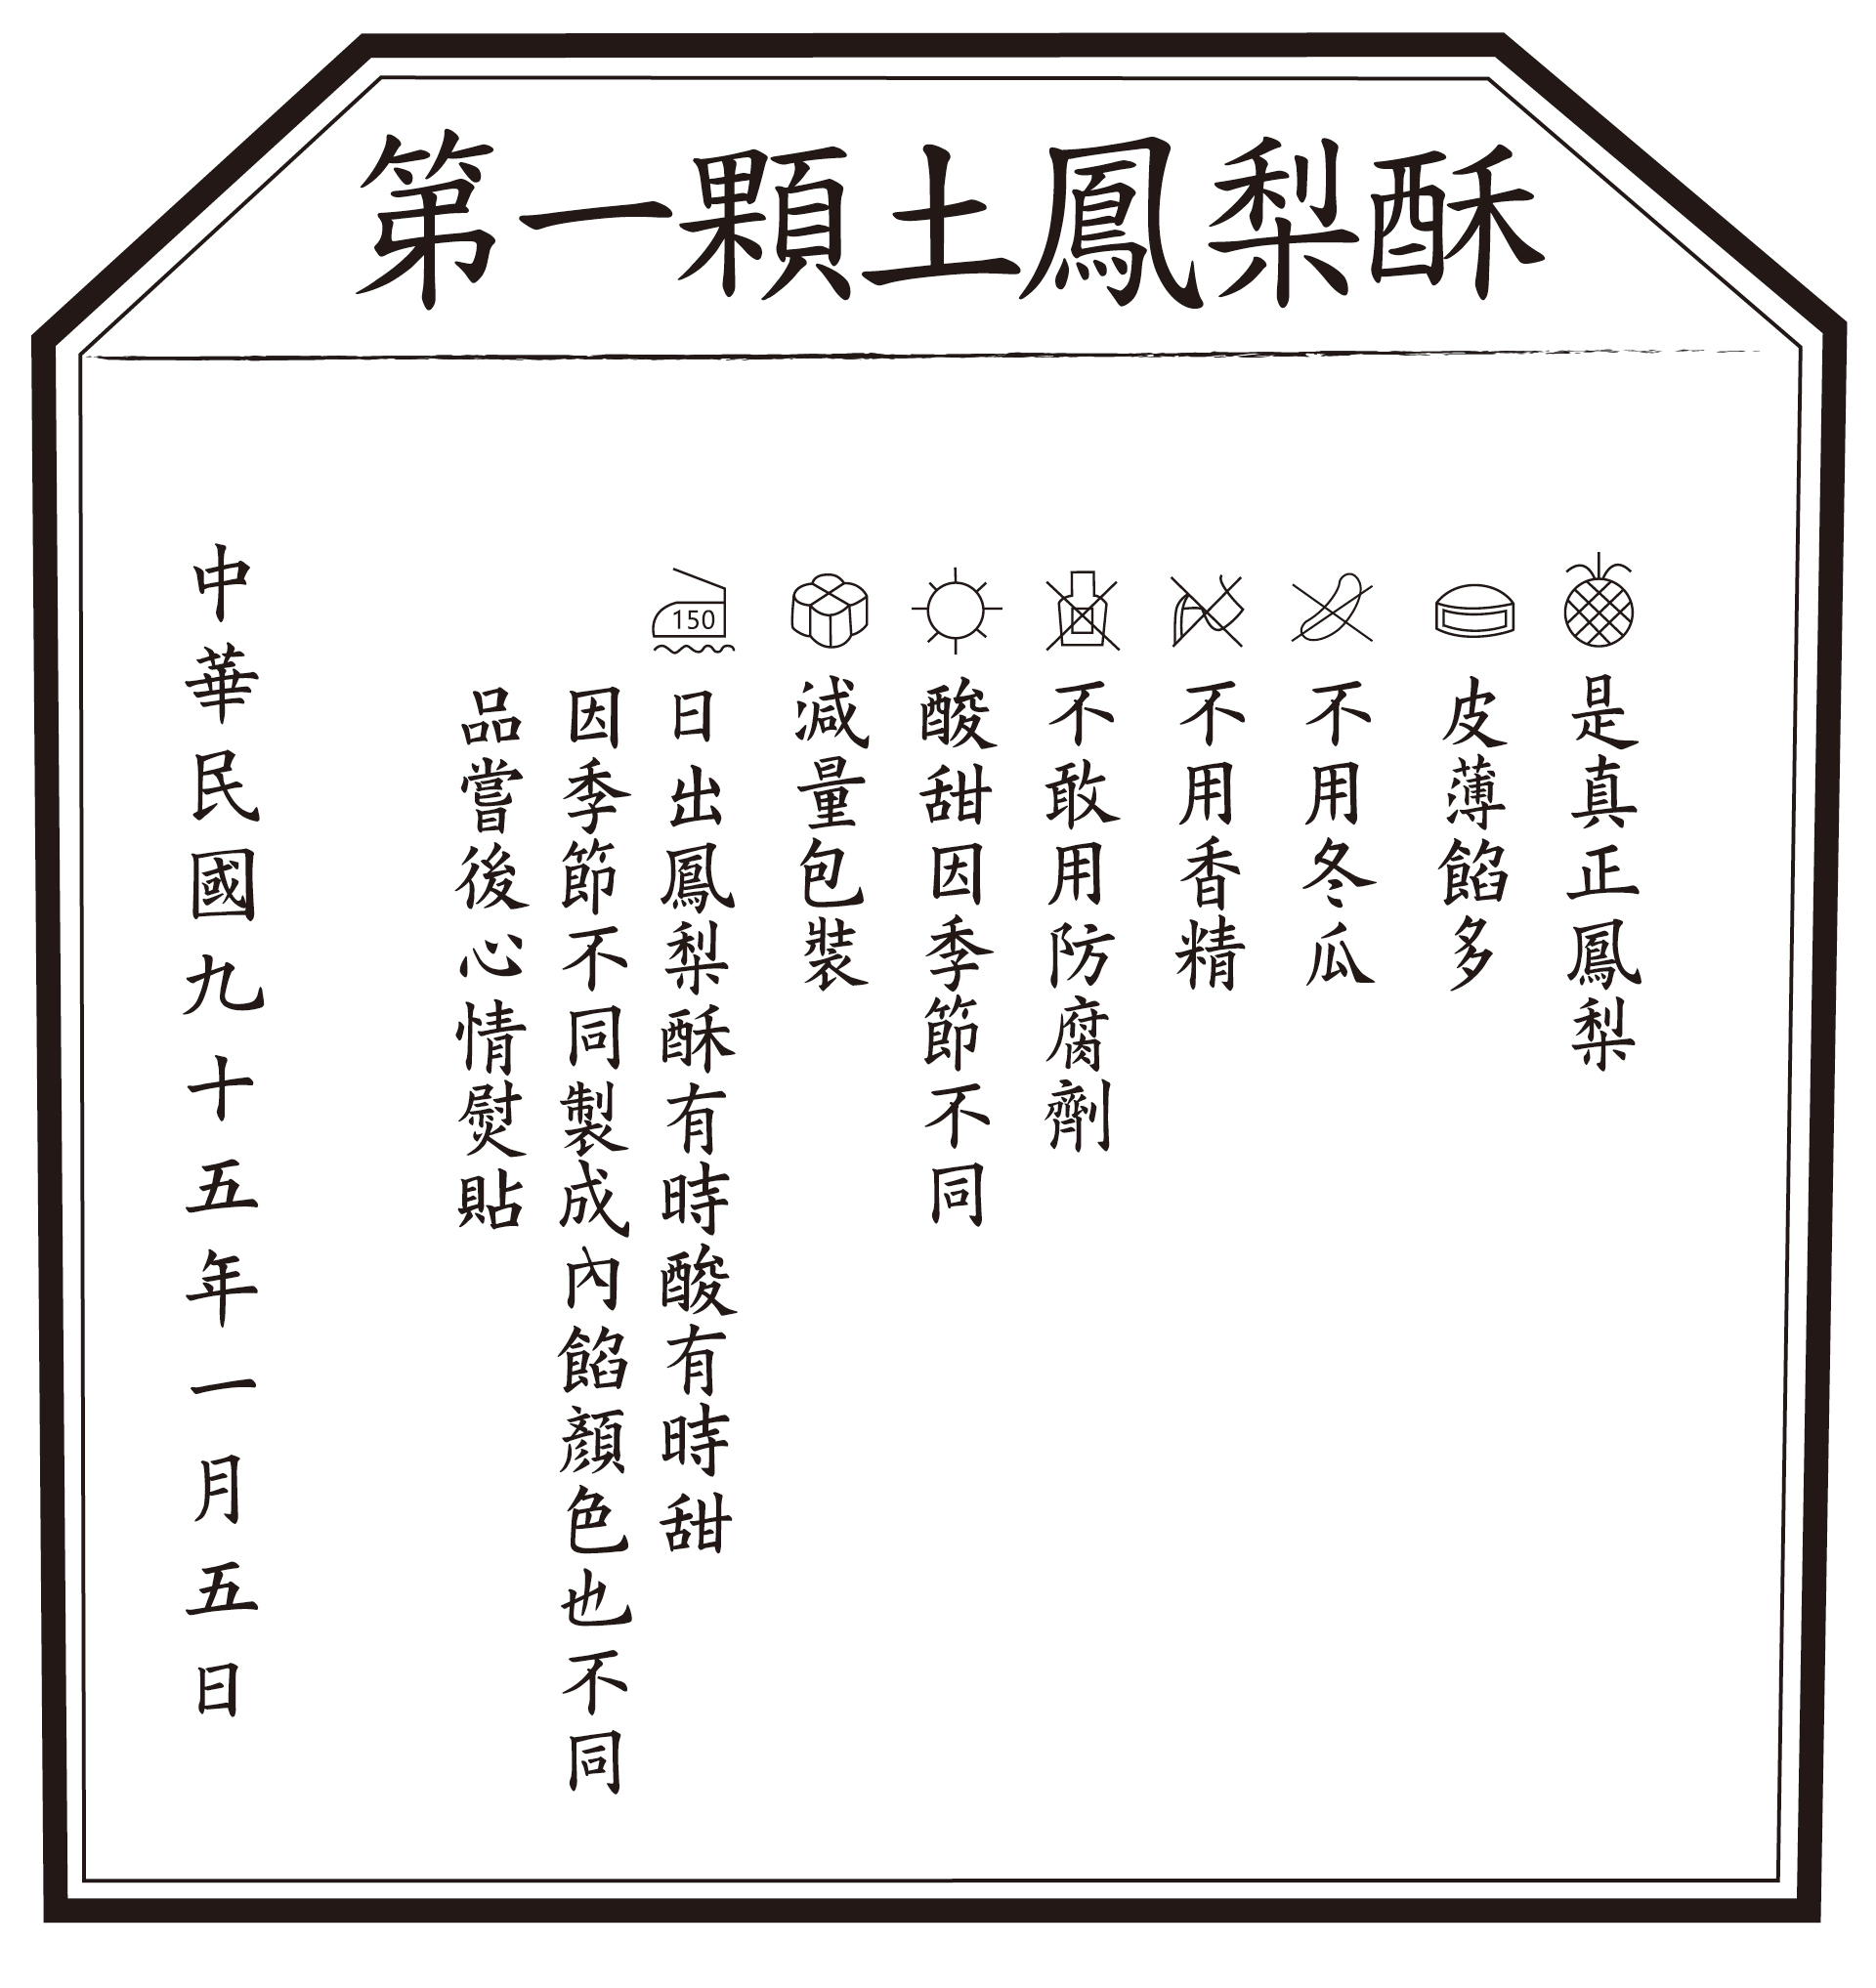 第一顆土鳳梨酥
是真正鳳梨
皮薄餡多
不用冬瓜
不用香精
不敢用防腐劑
酸甜因季節不同
減量包裝
150
日出鳳梨酥有時酸有時甜
因季節不同製成內餡顏色也不同
品嘗後心情熨貼
中華民國九十五年一月五日